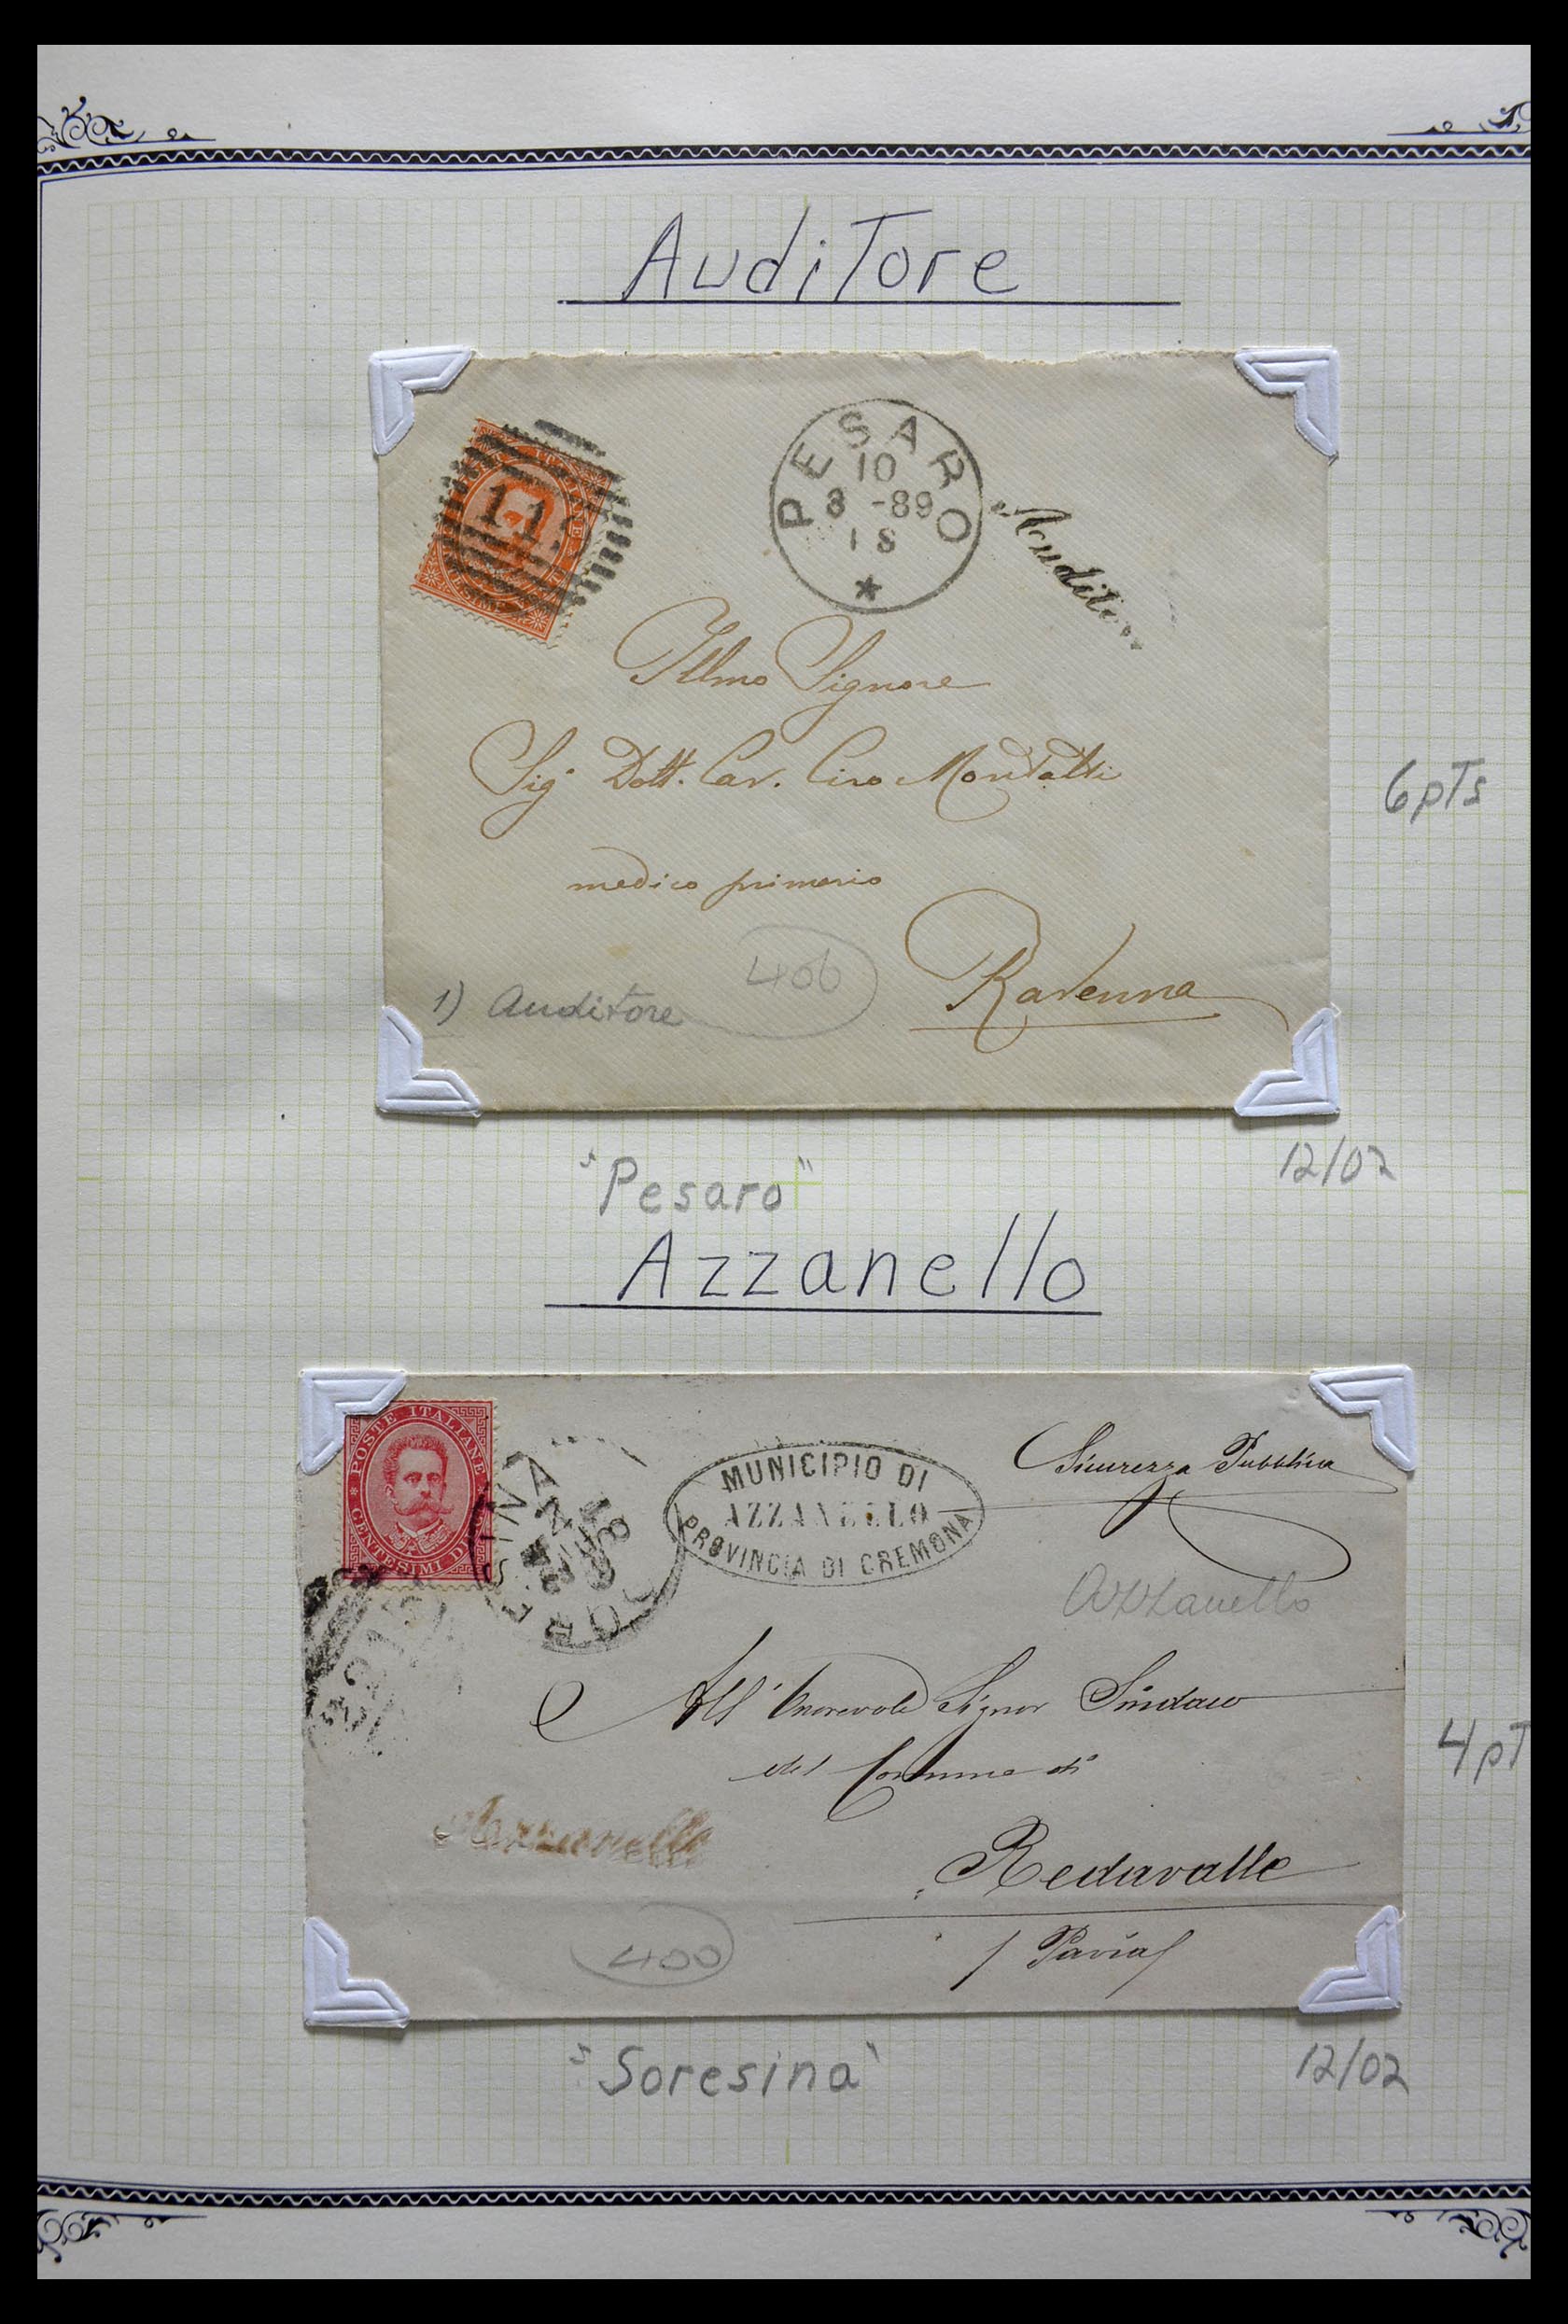 Auditore
PESARO
10
8 -89
1 S
Auditore
Illmo Signore
Sig. Dott. Cav. Ciro Montalti
medico primario
Ravenna
1) Auditore
400
6pTs
"Pesaro"
12/02
Azzanello
POSTE ITALIANE
CENTESIMI
MUNICIPIO DI
AZZANELLO
PROVINCIA DI CREMONA
Sicurezza Pubblica
Azzanello
All' Onorevole Signor Sindaco
del Comune di
Azzanello
Redavalle
/ Pavia /
400
4pT
"Soresina"
12/02